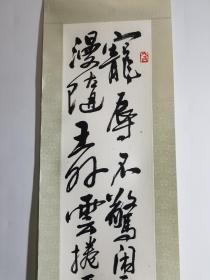 寵辱不驚
漫隨天外雲捲